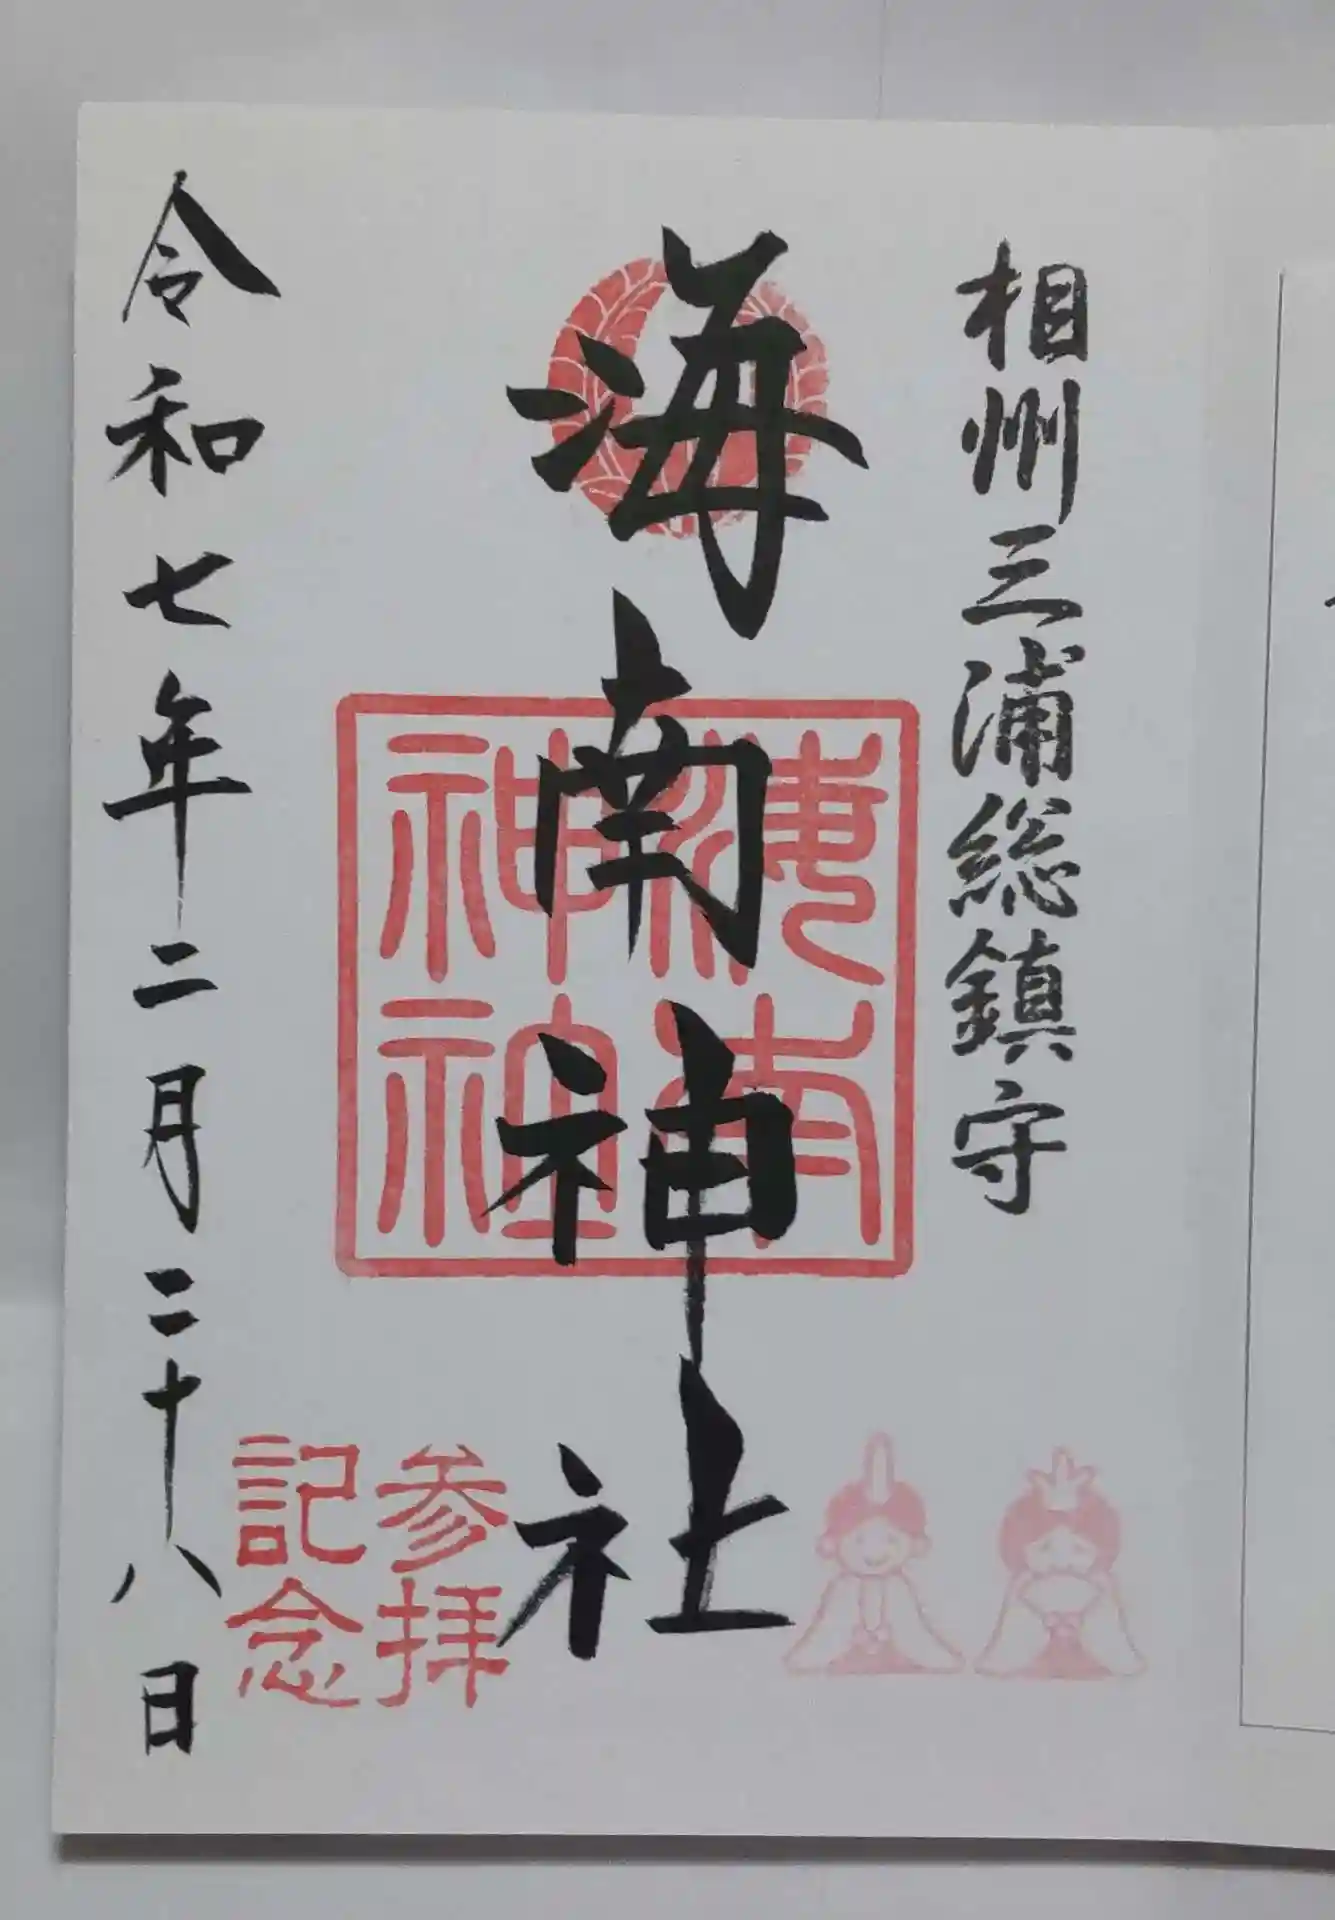 相州三浦総鎮守
海南神社
海南神社
参拝記念
令和七年二月二十八日